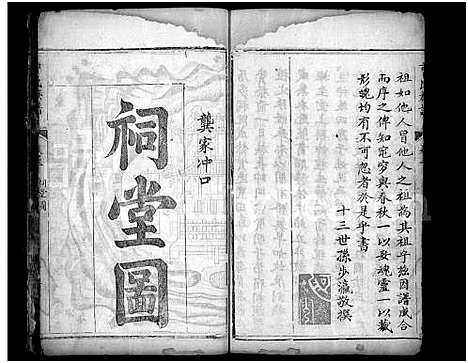 祖如他人曾他人之祖為其祖乎茲因譜成合
而序之俾知窀穸與春秋一以妥魂靈一以藏
形魄均有不可忽者於是乎書
十三世孫步瀛敬撰
龔家冲口
祠堂圖